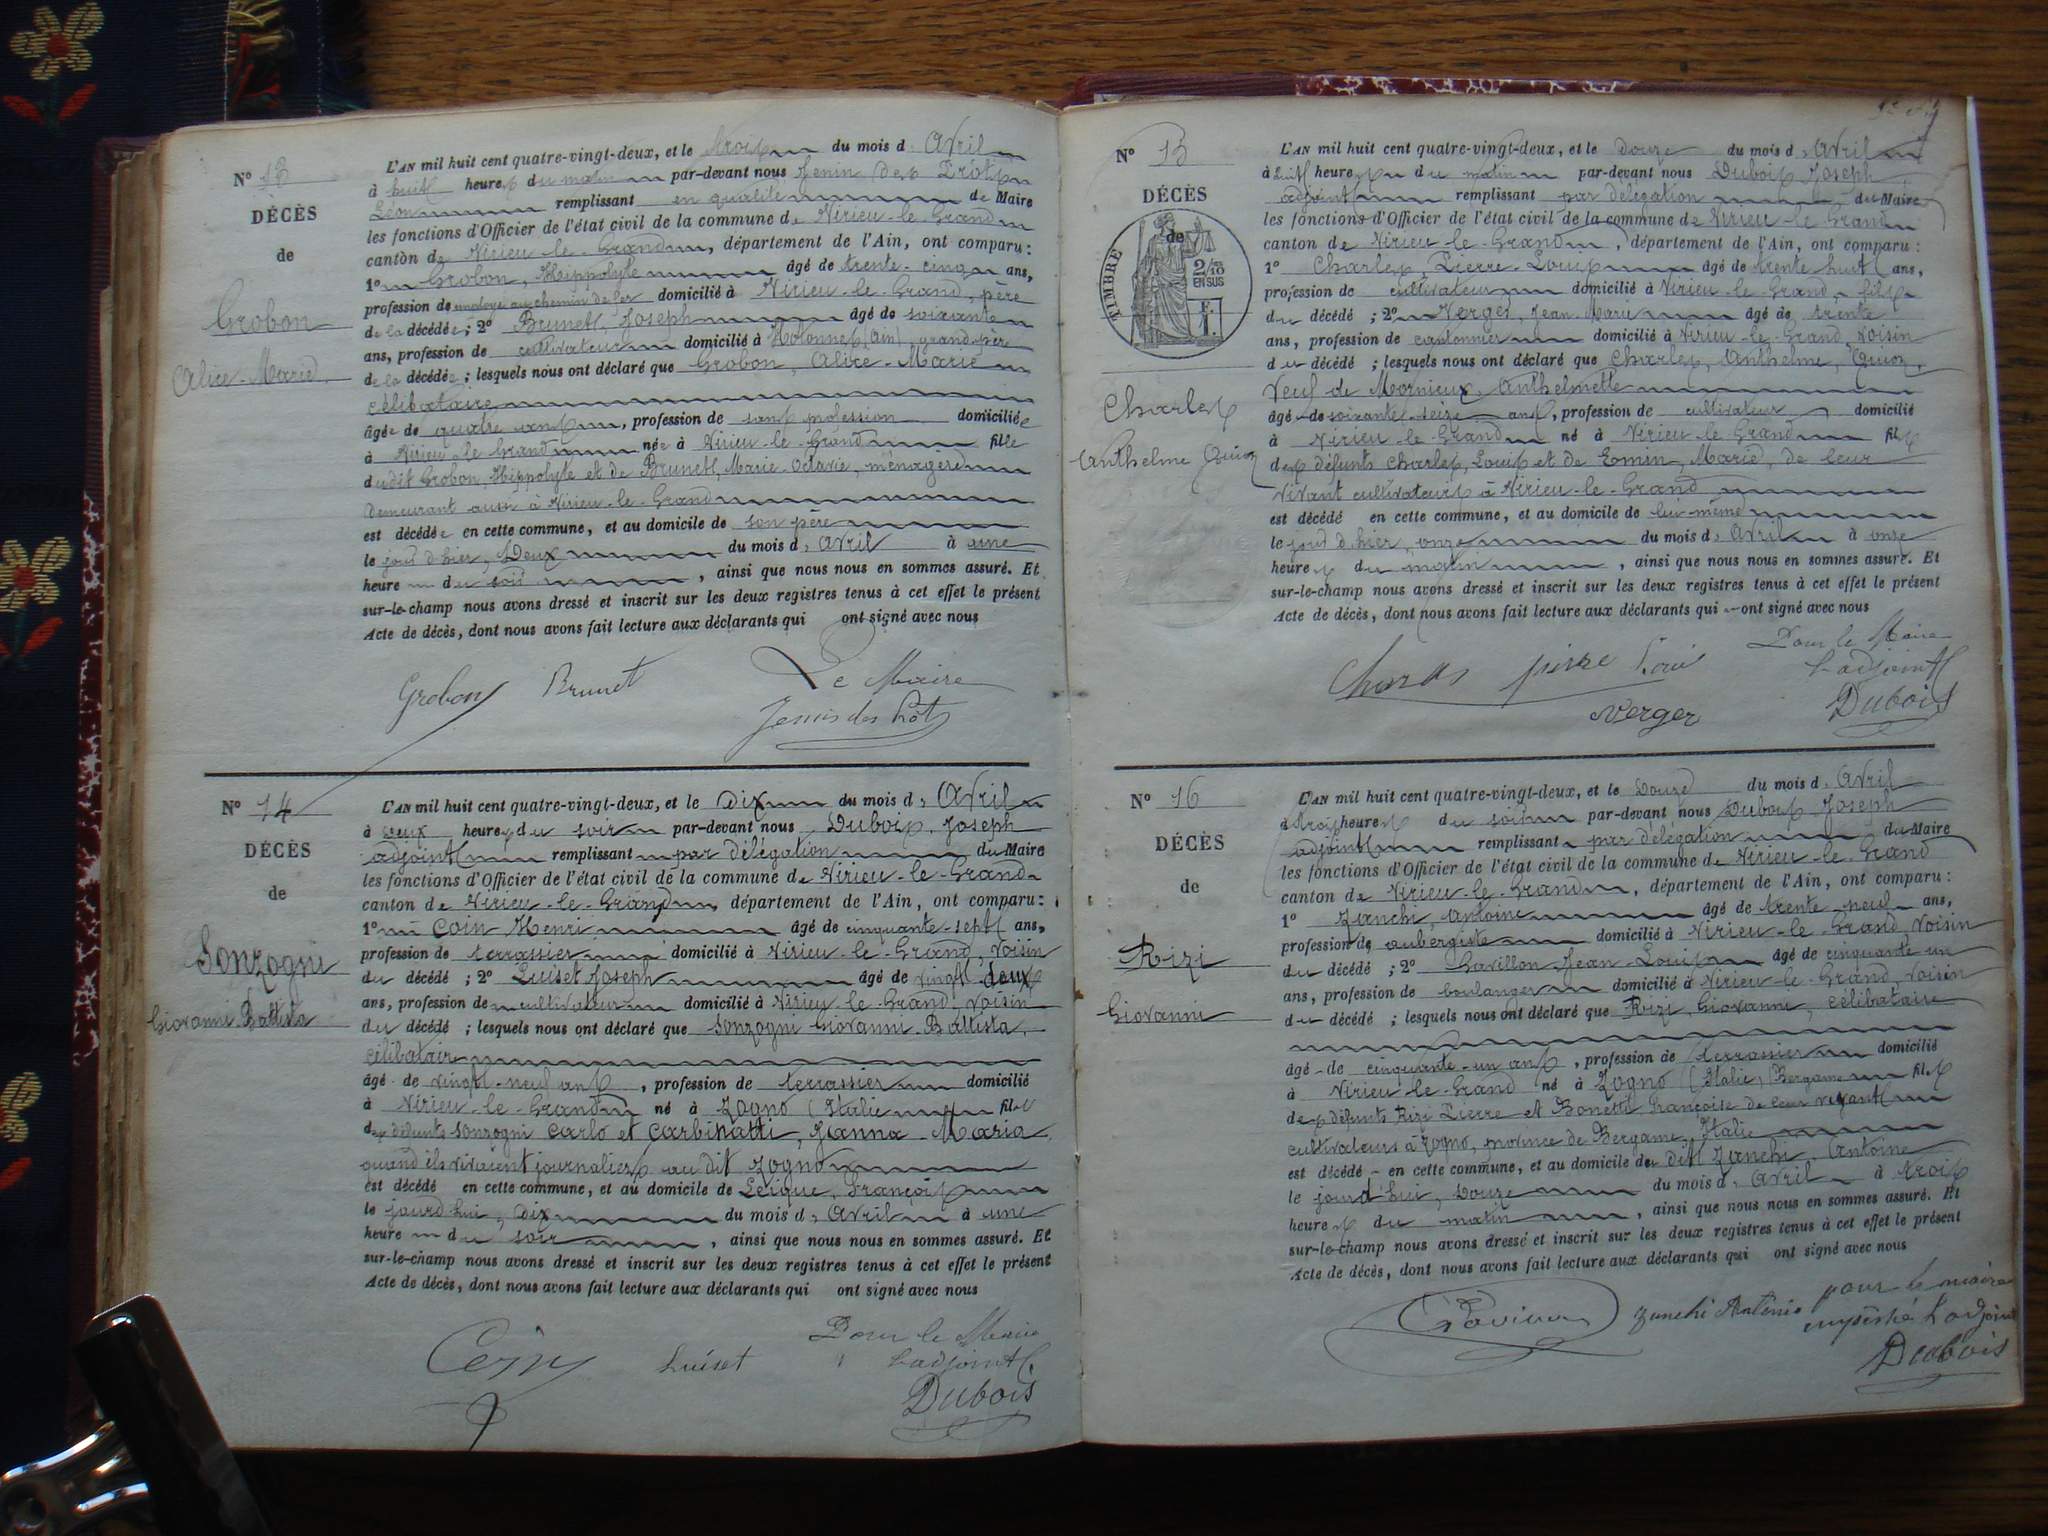 N° 13
DÉCÈS
de
Grobon
Alice-Marie
L'AN mil huit cent quatre-vingt-deux, et le trois du mois d'Avril
à huit heures du matin par-devant nous Jenin des Prôts
Léon remplissant en qualité de Maire
les fonctions d'Officier de l'état civil de la commune de Virieu-le-Grand
canton de Virieu-le-Grand, département de l'Ain, ont comparu:
1° Grobon, Hippolyte âgé de trente-cinq ans,
profession de employé au chemin de fer domicilié à Virieu-le-Grand, père
de la décédée; 2° Brunet, Joseph âgé de soixante
ans, profession de cultivateur domicilié à Hotonnes (Ain) grand-père
de la décédée; lesquels nous ont déclaré que Grobon, Alice-Marie
célibataire
âgée de quatre ans, profession de sans profession domiciliée
à Virieu-le-Grand née à Virieu-le-Grand fille
dudit Grobon, Hippolyte et de Brunet, Marie Octavie, ménagère
demeurant aussi à Virieu-le-Grand
est décédée en cette commune, et au domicile de son père
le jour d'hier, Deux du mois d'Avril à une
heure du soir, ainsi que nous nous en sommes assuré. Et
sur-le-champ nous avons dressé et inscrit sur les deux registres tenus à cet effet le présent
Acte de décès, dont nous avons fait lecture aux déclarants qui ont signé avec nous
Grobon Brunet Le Maire
Jenin des Prôts
N° 14
DÉCÈS
de
Sonzogni
Giovanni Battista
L'AN mil huit cent quatre-vingt-deux, et le Dix du mois d'Avril
à Deux heures du soir par-devant nous Dubois, Joseph
adjoint remplissant par délégation du Maire
les fonctions d'Officier de l'état civil de la commune de Virieu-le-Grand
canton de Virieu-le-Grand, département de l'Ain, ont comparu:
1° Coin Henri âgé de cinquante-sept ans,
profession de terrassier domicilié à Virieu-le-Grand, voisin
du décédé; 2° Luiset Joseph âgé de vingt-deux
ans, profession de cultivateur domicilié à Virieu-le-Grand, voisin
du décédé; lesquels nous ont déclaré que Sonzogni Giovanni-Battista,
célibataire
âgé de vingt-neuf ans, profession de terrassier domicilié
à Virieu-le-Grand né à Zogno (Italie fils
des défunts Sonzogni Carlo et Carbinatti, Janna-Maria
quand ils vivaient journaliers au dit Zogno
est décédé en cette commune, et au domicile de Leique, François
le jourd'hui, Dix du mois d'Avril à une
heure du soir, ainsi que nous nous en sommes assuré. Et
sur-le-champ nous avons dressé et inscrit sur les deux registres tenus à cet effet le présent
Acte de décès, dont nous avons fait lecture aux déclarants qui ont signé avec nous
Coin Luiset Pour le Maire
L'adjoint
Dubois
N° 15
DÉCÈS
de
TIMBRE
2/10
EN SUS
Charles
Anthelme
L'AN mil huit cent quatre-vingt-deux, et le douze du mois d'Avril
à huit heures du matin par-devant nous Dubois Joseph
adjoint remplissant par délégation du Maire
les fonctions d'Officier de l'état civil de la commune de Virieu-le-Grand
canton de Virieu-le-Grand, département de l'Ain, ont comparu:
1° Charles, Pierre-Louis âgé de trente huit ans,
profession de cultivateur domicilié à Virieu-le-Grand, fils
du décédé; 2° Verger, Jean-Marie âgé de trente
ans, profession de cantonnier domicilié à Virieu-le-Grand, voisin
du décédé; lesquels nous ont déclaré que Charles, Anthelme,
veuf de Mornieux, Anthelmette
âgé de soixante-seize ans, profession de cultivateur domicilié
à Virieu-le-Grand né à Virieu-le-Grand fils
des défunts Charles, Louis et de Eomin, Marie, de leur
vivant cultivateurs à Virieu-le-Grand
est décédé en cette commune, et au domicile de lui-même
le jour d'hier, onze du mois d'Avril à onze
heures du matin, ainsi que nous nous en sommes assuré. Et
sur-le-champ nous avons dressé et inscrit sur les deux registres tenus à cet effet le présent
Acte de décès, dont nous avons fait lecture aux déclarants qui ont signé avec nous
Charles pierre Loui Pour le Maire
L'adjoint
Verger Dubois
N° 16
DÉCÈS
de
Rizi
Giovanni
L'AN mil huit cent quatre-vingt-deux, et le Douze du mois d'Avril
à trois heures du soir par-devant nous Dubois Joseph
adjoint remplissant par délégation du Maire
les fonctions d'Officier de l'état civil de la commune de Virieu-le-Grand
canton de Virieu-le-Grand, département de l'Ain, ont comparu:
1° Zanchi, Antoine âgé de trente-neuf ans,
profession de aubergiste domicilié à Virieu-le-Grand, voisin
du décédé; 2° Gavillon Jean-Louis âgé de cinquante-un
ans, profession de boulanger domicilié à Virieu-le-Grand, voisin
du décédé; lesquels nous ont déclaré que Rizi, Giovanni, célibataire
âgé de cinquante-un ans, profession de terrassier domicilié
à Virieu-le-Grand né à Zogno (Italie) Bergame fils
des défunts Rizi Pierre et Bonetti Françoise de leur vivant
cultivateurs à Zogno, province de Bergame, Italie
est décédé en cette commune, et au domicile de dit Zanchi, Antoine
le jourd'hui, Douze du mois d'Avril à trois
heures du matin, ainsi que nous nous en sommes assuré. Et
sur-le-champ nous avons dressé et inscrit sur les deux registres tenus à cet effet le présent
Acte de décès, dont nous avons fait lecture aux déclarants qui ont signé avec nous
Zanchi Antonio pour le maire
l'adjoint
Dubois